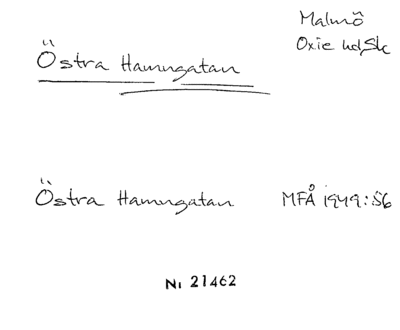 Malmö
Oxie hd, Sk
Östra Hamngatan
Östra Hamngatan MFÅ 1949:56
Ni 21462